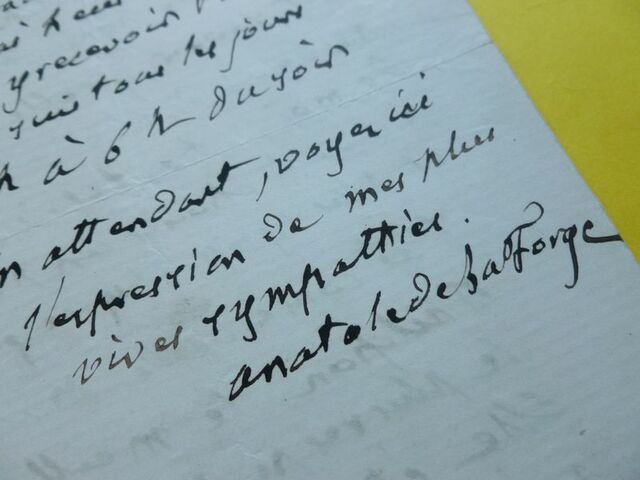 y recevoir
suis tous les jours
à 6 h du soir
attendant, voyez ici
l'expression de mes plus
vives sympathies.
anatole de la Forge